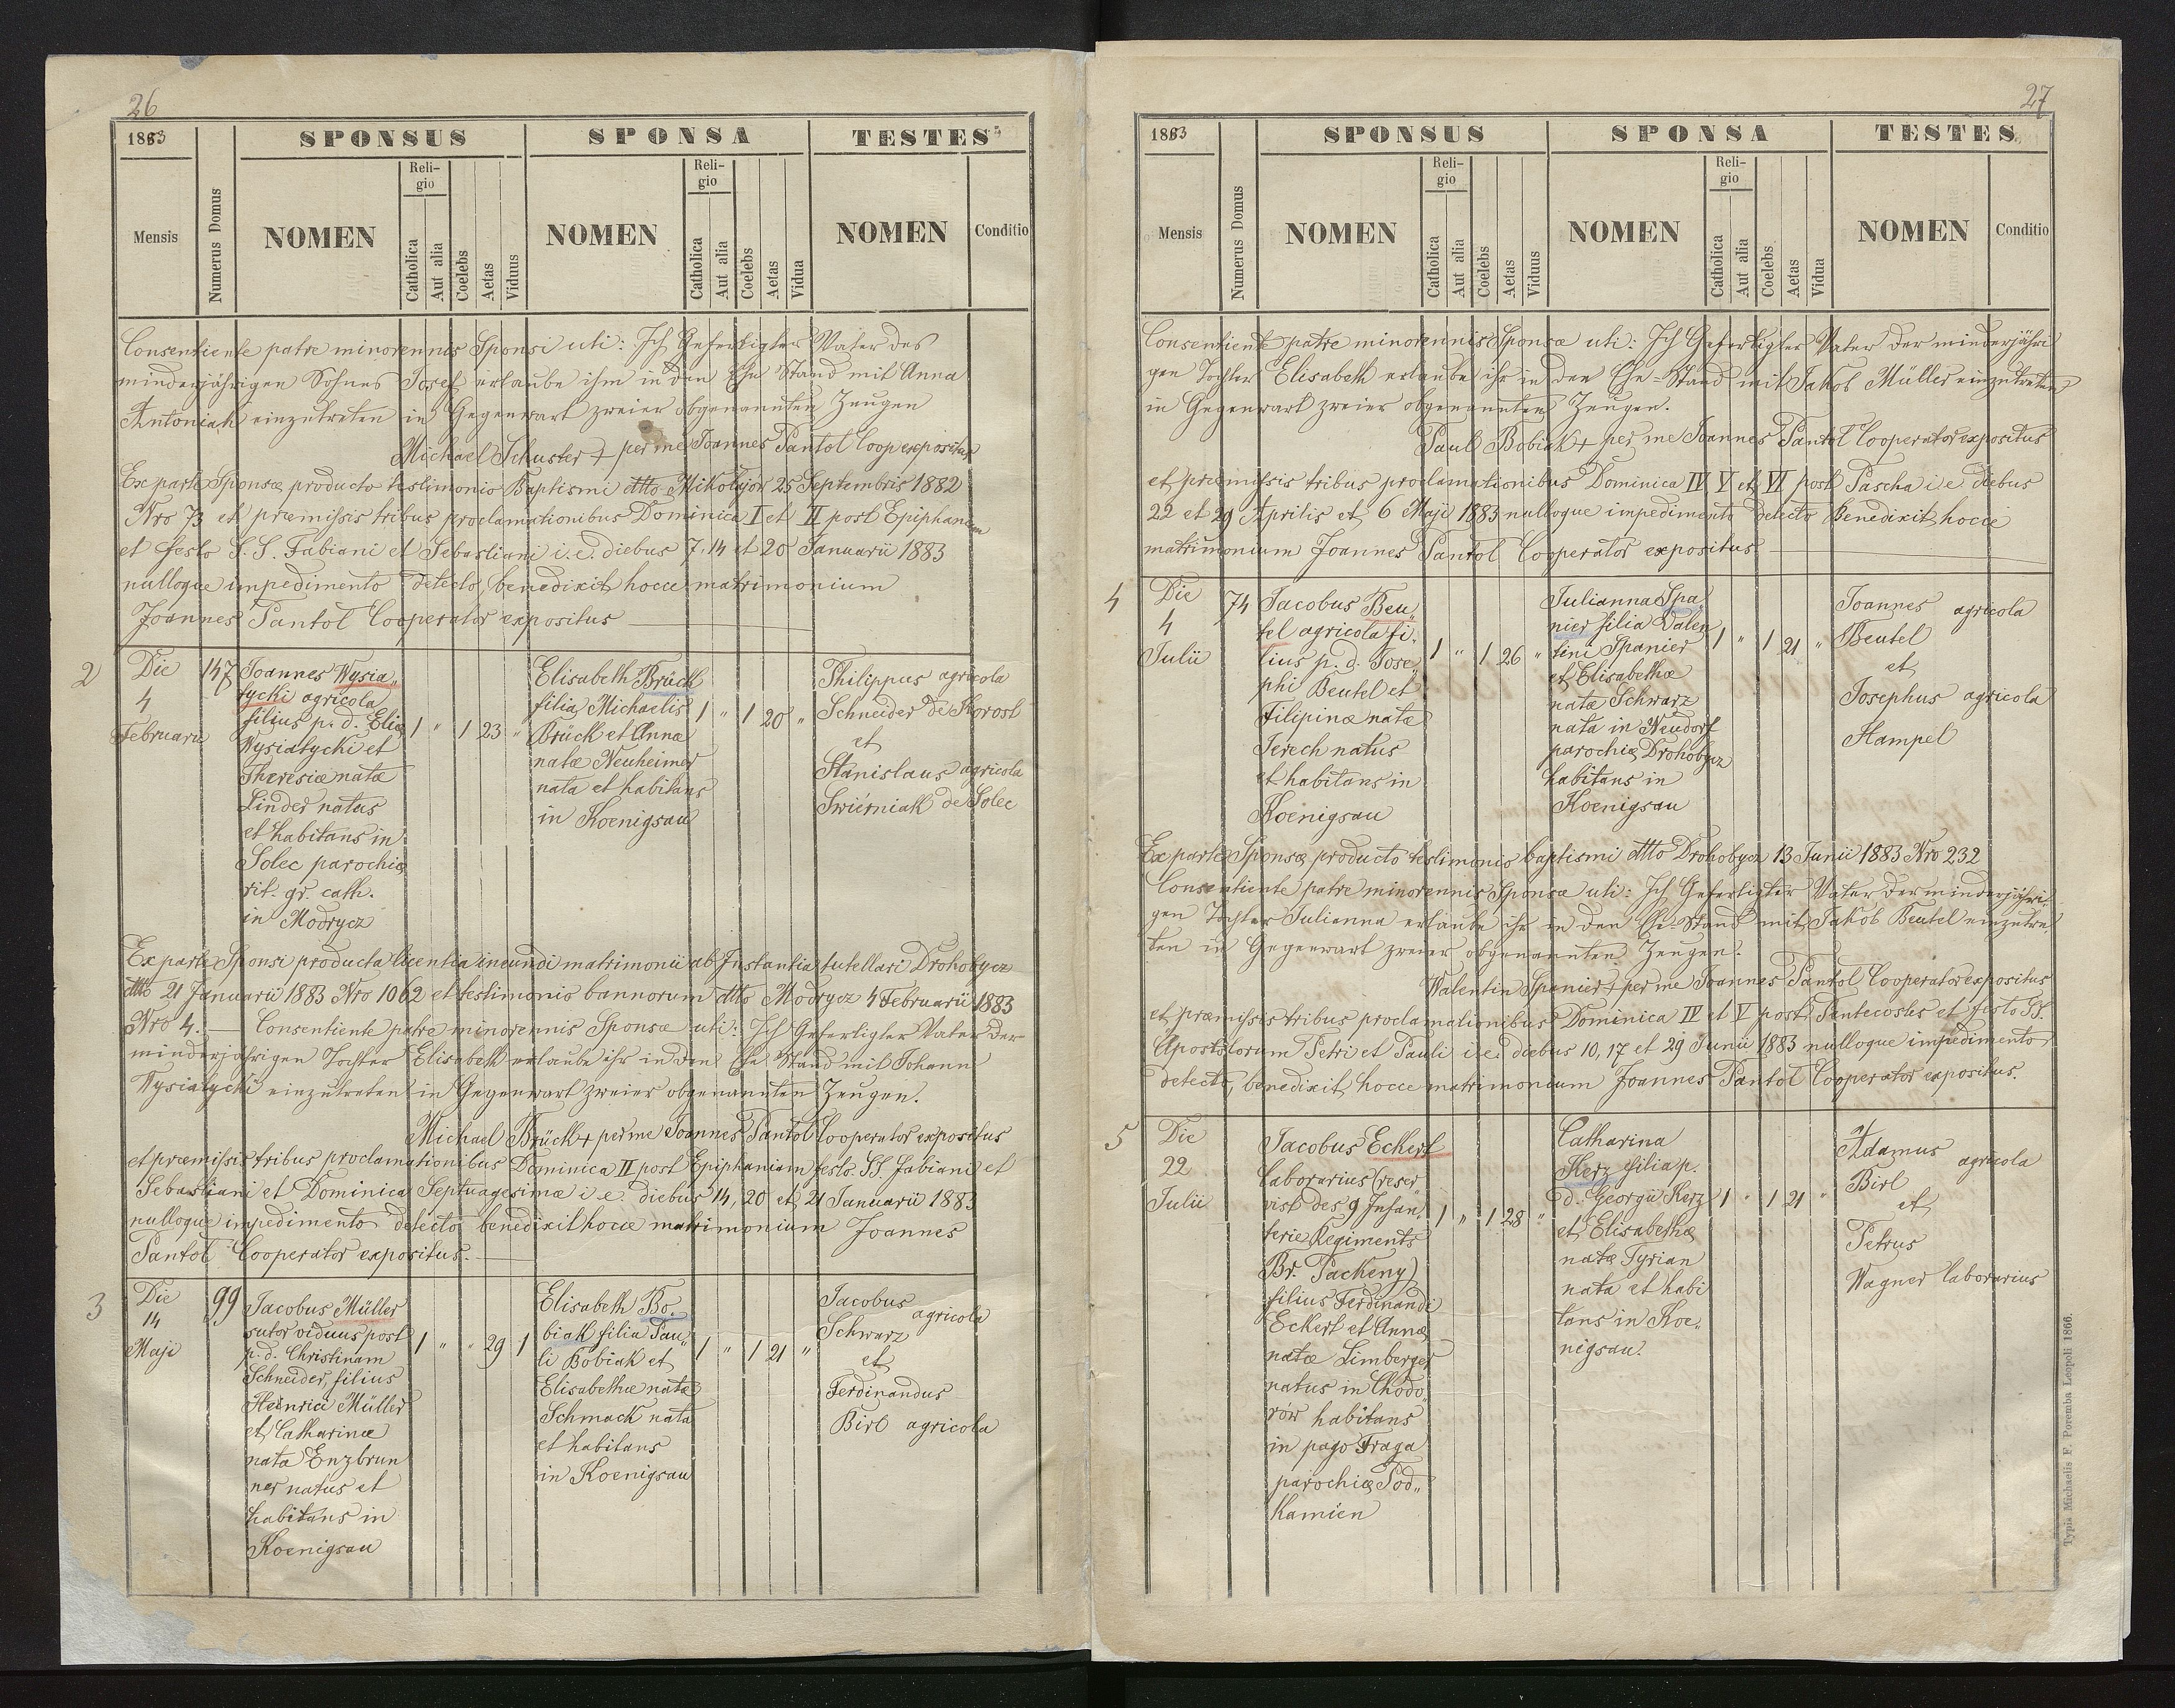 26
1883
SPONSUS
SPONSA
TESTES
Mensis
Numerus Domus
NOMEN
Religio
Catholica
Aut alia
Coelebs
Aetas
Viduus
NOMEN
Religio
Catholica
Aut alia
Coelebs
Aetas
Vidua
NOMEN
Conditio
Consentiente patre minorennis Sponsi uti: Ich Gefertigter Vater des
minderjährigen Sohnes Josef erlaube ihm in den Ehe Stand mit Anna
Antoniak einzutreten in Gegenwart zweier obgenannten Zeugen
Michael Schuster + per me Joannes Pantol Coop expositus
Ex parte Sponsæ producto testimonio Baptismi dtto Mikołajów 25 Septembris 1882
Nro 73 et præmissis tribus proclamationibus Dominica I et II post Epiphaniam
et festo S. S. Fabiani et Sebastiani i. e. diebus 7, 14 et 20 Januarii 1883
nulloque impedimento detecto, benedixit hocce matrimonium
Joannes Pantol Cooperator expositus
2
Die
4
Februarii
147
Joannes Wysia„
tycki agricola
filius p. d. Eliæ
Wysiatycki et
Theresiæ natæ
Linder natus
et habitans in
Solec parochiæ
rit. gr. cath.
in Modrycz
1 " 1 23 "
Elisabeth Brück
filia Michaelis
Brück et Annæ
natæ Neuheimer
nata et habitans
in Koenigsau
1 " 1 20 "
Philippus agricola
Schneider de Korost
et
Stanislaus agricola
Swiérniak de Solec
Ex parte Sponsi producta licentia ineundi matrimonii ab Instantia tutellari Drohobycz
dtto 21 Januarii 1883 Nro 1062 et testimonio bannorum dtto Modrycz 4 Februarii 1883
Nro 4. — Consentiente patre minorennis Sponsæ uti: Ich Gefertigter Vater der
minderjährigen Tochter Elisabeth erlaube ihr in den Ehe Stand mit Johann
Wysiatycki einzutreten in Gegenwart zweier obgenannten Zeugen.
Michael Brück + per me Joannes Pantol Cooperator expositus
et præmissis tribus proclamationibus Dominica II post Epiphaniam festo SS Fabiani et
Sebastiani et Dominica Septuagesimæ i. e. diebus 14, 20 et 21 Januarii 1883
nulloque impedimento detecto benedixit hocce matrimonium Joannes
Pantol Cooperator expositus.
3
Die
14
Maji
99
Jacobus Müller
sutor viduus post
p. d. Christinam
Schneider, filius
Heinrici Müller
et Catharinæ
nata Enzbrun
ner natus et
habitans in
Koenigsau
1 " " 29 1
Elisabeth Bo„
biak filia Pau„
li Bobiak et
Elisabethæ natæ
Schmack nata
et habitans
in Koenigsau
1 " 1 21 "
Jacobus
Schwarz agricola
et
Ferdinandus
Birl agricola
27
1883
SPONSUS
SPONSA
TESTES
Mensis
Numerus Domus
NOMEN
Religio
Catholica
Aut alia
Coelebs
Aetas
Viduus
NOMEN
Religio
Catholica
Aut alia
Coelebs
Aetas
Vidua
NOMEN
Conditio
Consentiente patre minorennis Sponsæ uti: Ich Gefertigter Vater der minderjähri
gen Tochter Elisabeth erlaube ihr in den Ehe-Stand mit Jakob Müller einzutreten
in Gegenwart zweier obgenannten Zeugen.
Paul Bobiak + per me Joannes Pantol Cooperator expositus
et præmissis tribus proclamationibus Dominica IV V et VI post Pascha i. e. diebus
22 et 29 Aprilis et 6 Maji 1883 nulloque impedimento detecto Benedixit hocce
matrimonium Joannes Pantol Cooperator expositus
4
Die
4
Julii
74
Jacobus Beu„
tel agricola fi„
lius p. d. Jose„
phi Beutel et
Filipinæ natæ
Jerech natus
et habitans in
Koenigsau
1 " 1 26 "
Julianna Spa
nier filia Valen
tini Spanier
et Elisabethæ
natæ Schwarz
nata in Neudorf
parochiæ Drohobycz
habitans in
Koenigsau
1 " 1 21 "
Joannes agricola
Beutel
et
Josephus agricola
Hampel
Ex parte Sponsæ producto testimonio baptismi dtto Drohobycz 13 Junii 1883 Nro 232
Consentiente patre minorennis Sponsæ uti: Ich Gefertigter Vater der minderjähri„
gen Tochter Julianna erlaube ihr in den Ehe-Stand mit Jakob Beutel einzutre„
ten in Gegenwart zweier obgenannten Zeugen.
Walentin Spanier + per me Joannes Pantol Cooperator expositus
et præmissis tribus proclamationibus Dominica IV et V post Pentecostes et festo SS.
Apostolorum Petri et Pauli i. e. diebus 10, 17 et 29 Junii 1883 nulloque impedimento
detecto, benedixit hocce matrimonium Joannes Pantol Cooperator expositus.
5
Die
22
Julii
Jacobus Eckert
laborarius (reser
vist des 9 Infan„
terie Regiments
Br. Packeny)
filius Ferdinandi
Eckert et Annæ
natæ Limberger
natus in Chodo„
rów habitans
in pago Fraga
parochiæ Pod„
kamień
1 " 1 28 "
Catharina
Kerz filia p.
d. Georgii Kerz
et Elisabethæ
natæ Tyrian
nata et habi
tans in Koe„
nigsau.
1 " 1 21 "
Adamus
Birl agricola
et
Petrus
Wagner laborarius
Typis Michaelis F. Poremba Leopoli 1866.